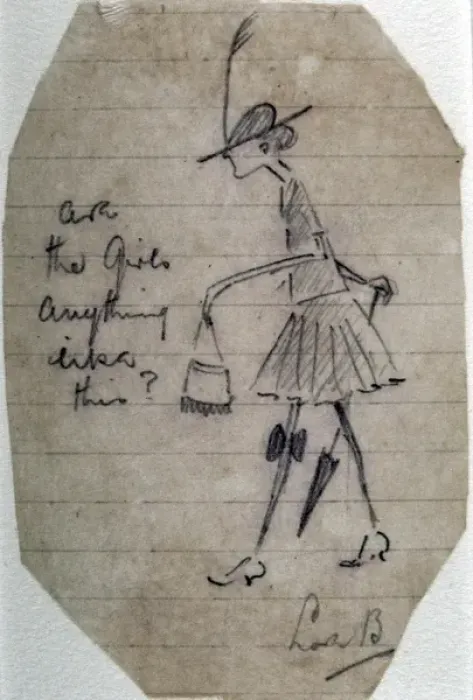 are
the Girls
anything
like
this?
B